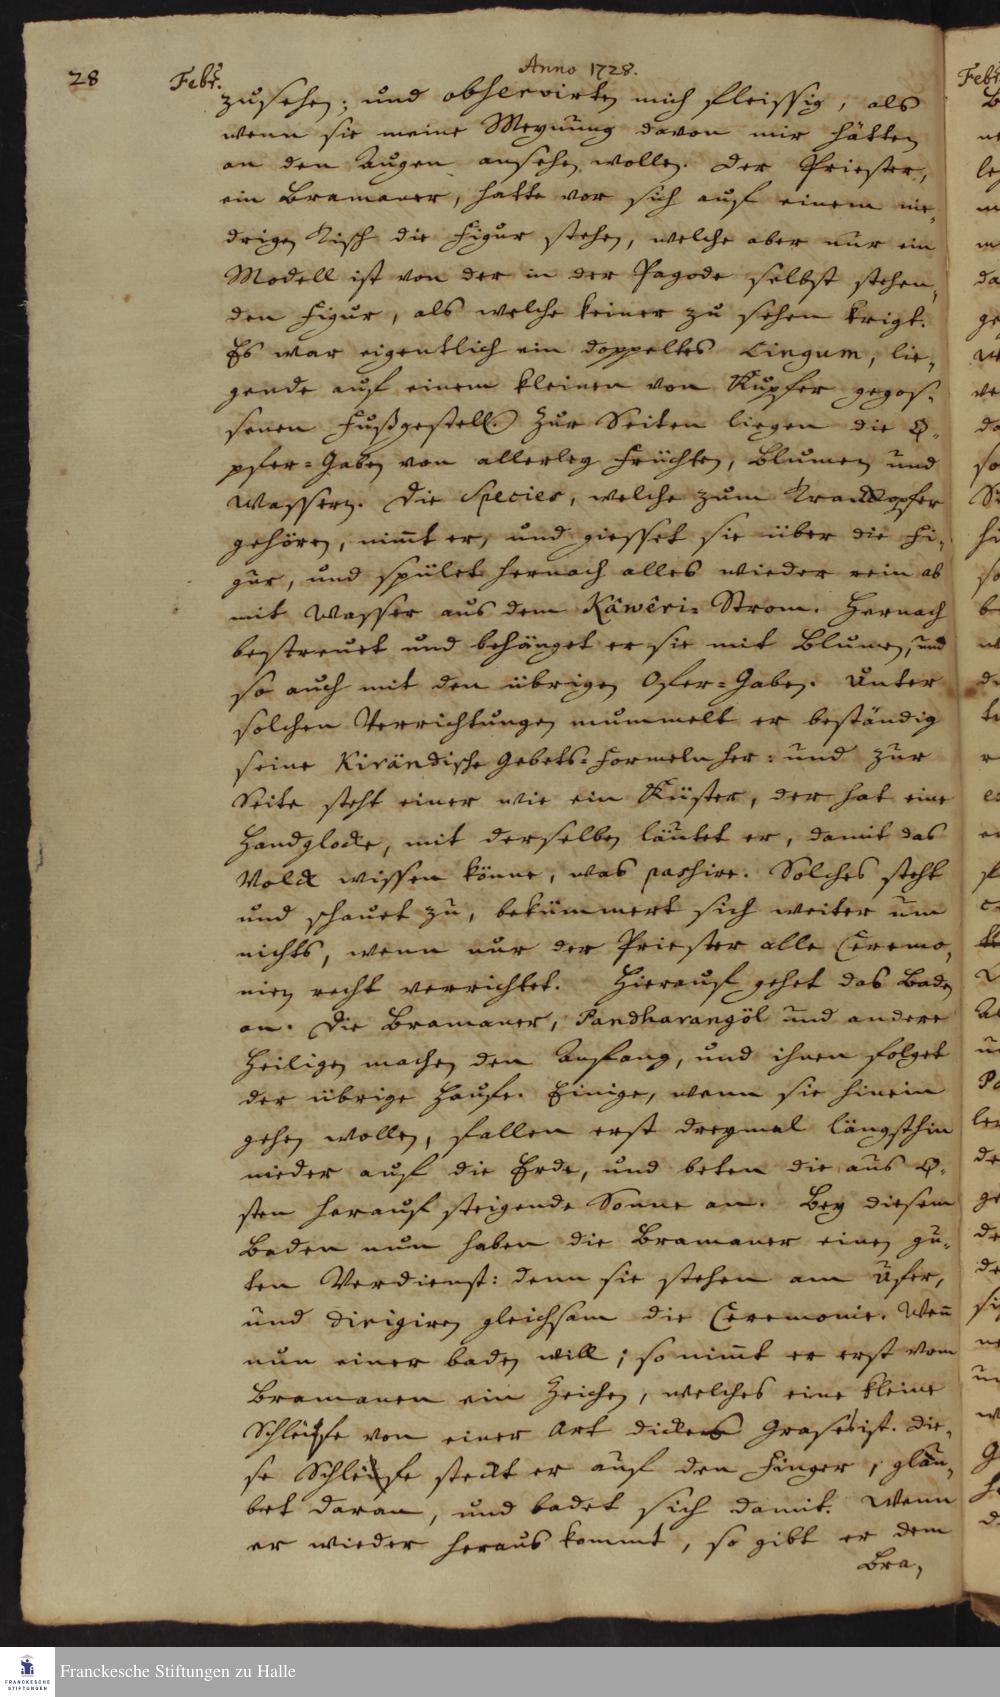 28
Febr.
Anno 1728.
zusehen; und observirten mich fleissig, als
wenn sie meine Meynung davon mir hätten
an den Augen ansehen wollen. Der Priester,
ein Bramaner, hatte vor sich auf einem nie-
drigen Tisch die Figur stehen, welche aber nur ein
Modell ist von der in der Pagode selbst stehen-
den Figur, als welche keiner zu sehen kriegt.
Es war eigentlich ein doppeltes Lingum, lie-
gende auf einem kleinen von Kupfer gegos-
senen Fußgestell. Zur Seiten liegen die O-
pfer-Gaben von allerley Früchten, Blumen und
Wassern. Die Species, welche zum Tranckopfer
gehören, nimt er, und giesset sie über die Fi-
gur, und spület hernach alles wieder rein ab
mit Wasser aus dem Kâwêri-Strom. Hernach
bestreuet und behänget er sie mit Blumen, und
so auch mit den übrigen Ofer-Gaben. Unter
solchen Verrichtungen mummelt er beständig
seine Kirändische Gebets-Formeln her: und zur
Seite steht einer wie ein Küster, der hat eine
Handglocke, mit derselben läutet er, damit das
Volck wissen könne, was pashire. Solches steht
und schauet zu, bekümmert sich weiter um
nichts, wenn nur der Priester alle Ceremo-
nien recht verrichtet. Hierauf gehet das Baden
an. Die Bramaner, Pandharangöl und andere
Heiligen machen den Anfang, und ihnen folget
der übrige Haufe. Einige, wenn sie hinein
gehen wollen, fallen erst dreymal längsthin
nieder auf die Erde, und beten die aus O-
sten herauf steigende Sonne an. Bey diesem
Baden nun haben die Bramaner einen gu-
ten Verdienst: denn sie stehen am Ufer,
und dirigiren gleichsam die Ceremonie. Wen̄
nun einer baden will; so nimt er erst vom
Bramanen ein Zeichen, welches eine kleine
Schleife von einer Art dickes Grases ist. Die-
se Schleife steckt er auf den Finger, gläu-
bet daran, und badet sich damit. Wenn
er wieder heraus kommt, so gibt er dem
Bra-
Febr.
Franckesche Stiftungen zu Halle
FRANCKESCHE
STIFTUNGEN